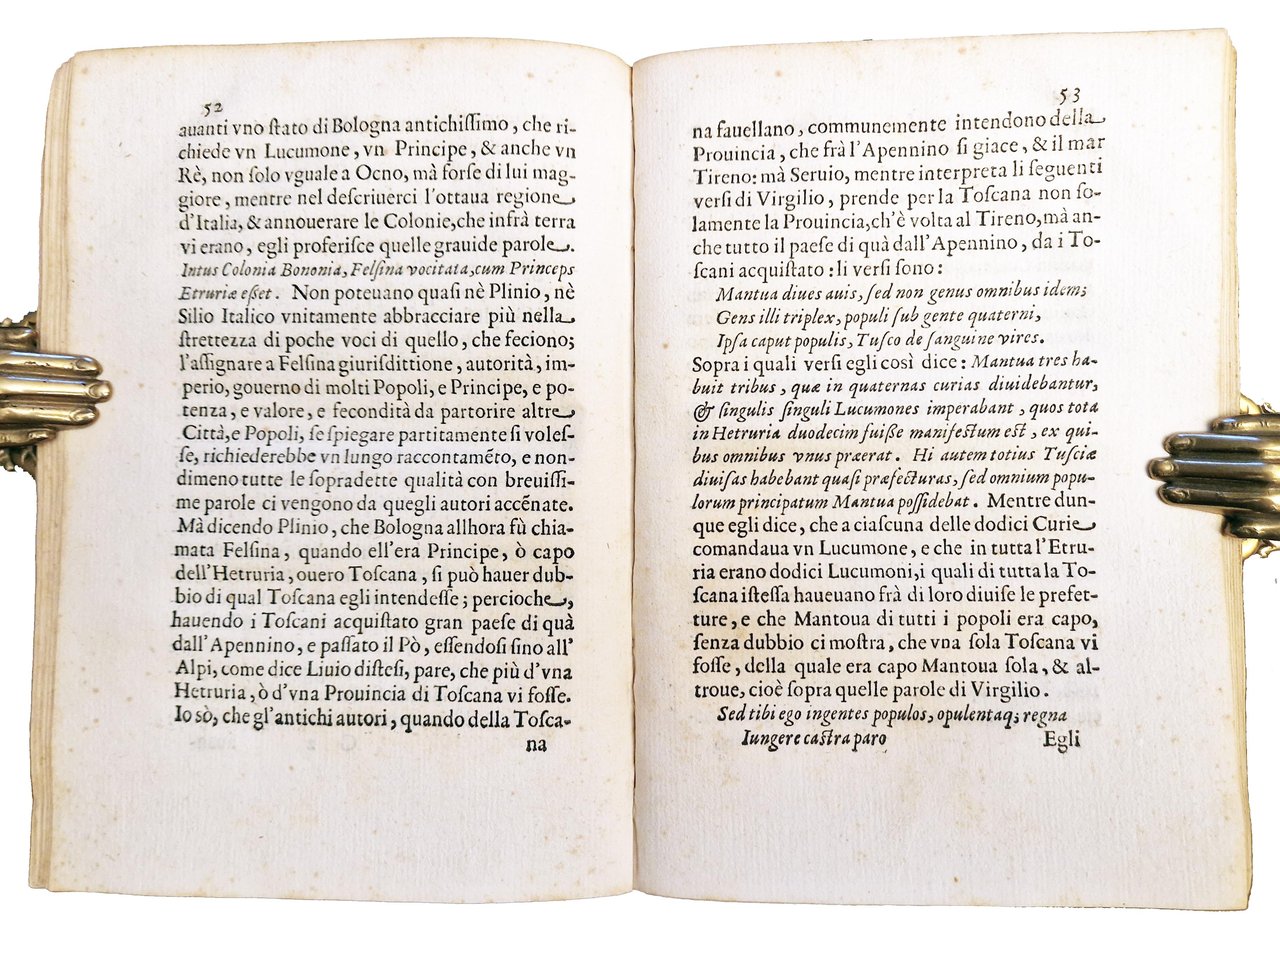 52
auanti vno ſtato di Bologna antichiſſimo, che ri-
chiede vn Lucumone, vn Principe, & anche vn
Rè, non ſolo vguale a Ocno, mà forſe di lui mag-
giore, mentre nel deſcriuerci l'ottaua regione
d'Italia, & annouerare le Colonie, che infrà terra
vi erano, egli proferiſce quelle grauide parole.
Intus Colonia Bononia, Felſina vocitata, cum Princeps
Etruriæ eßet. Non poteuano quaſi nè Plinio, nè
Silio Italico vnitamente abbracciare più nella
ſtrettezza di poche voci di quello, che feciono;
l'aſſignare a Felſina giurisdittione, autorità, im-
perio, gouerno di molti Popoli, e Principe, e po-
tenza, e valore, e fecondità da partorire altre
Città, e Popoli, ſe ſpiegare partitamente ſi voleſ-
ſe, richiederebbe vn lungo raccontamẽto, e non-
dimeno tutte le ſopradette qualità con breuiſſi-
me parole ci vengono da quegli autori accẽnate.
Mà dicendo Plinio, che Bologna allhora fù chia-
mata Felſina, quando ell'era Principe, ò capo
dell'Hetruria, ouero Toſcana, ſi può hauer dub-
bio di qual Toſcana egli intendeſſe; percioche,
hauendo i Toſcani acquiſtato gran paeſe di quà
dall'Apennino, e paſſato il Pò, eſſendoſi ſino all'
Alpi, come dice Liuio diſteſi, pare, che più d'vna
Hetruria, ò d'vna Prouincia di Toſcana vi foſſe.
Io sò, che gl'antichi autori, quando della Toſca-
na
53
na fauellano, communemente intendono della
Prouincia, che frà l'Apennino ſi giace, & il mar
Tireno: mà Seruio, mentre interpreta li ſeguenti
verſi di Virgilio, prende per la Toſcana non ſo-
lamente la Prouincia, ch'è volta al Tireno, mà an-
che tutto il paeſe di quà dall'Apennino, da i To-
ſcani acquiſtato: li verſi ſono:
Mantua diues auis, ſed non genus omnibus idem;
Gens illi triplex, populi ſub gente quaterni,
Ipſa caput populis, Tuſco de ſanguine vires.
Sopra i quali verſi egli così dice: Mantua tres ha-
buit tribus, quæ in quaternas curias diuidebantur,
& ſingulis ſinguli Lucumones imperabant, quos tota
in Hetruria duodecim fuiße manifeſtum eſt, ex qui-
bus omnibus vnus præerat. Hi autem totius Tuſciæ
diuiſas habebant quaſi præfecturas, ſed omnium popu-
lorum principatum Mantua poſſidebat. Mentre dun-
que egli dice, che a ciaſcuna delle dodici Curie
comandaua vn Lucumone, e che in tutta l'Etru-
ria erano dodici Lucumoni, i quali di tutta la To-
ſcana iſteſſa haueuano frà di loro diuiſe le prefet-
ture, e che Mantoua di tutti i popoli era capo,
ſenza dubbio ci moſtra, che vna ſola Toſcana vi
foſſe, della quale era capo Mantoua ſola, & al-
troue, cioè ſopra quelle parole di Virgilio.
Sed tibi ego ingentes populos, opulentaq; regna
Iungere caſtra paro
Egli